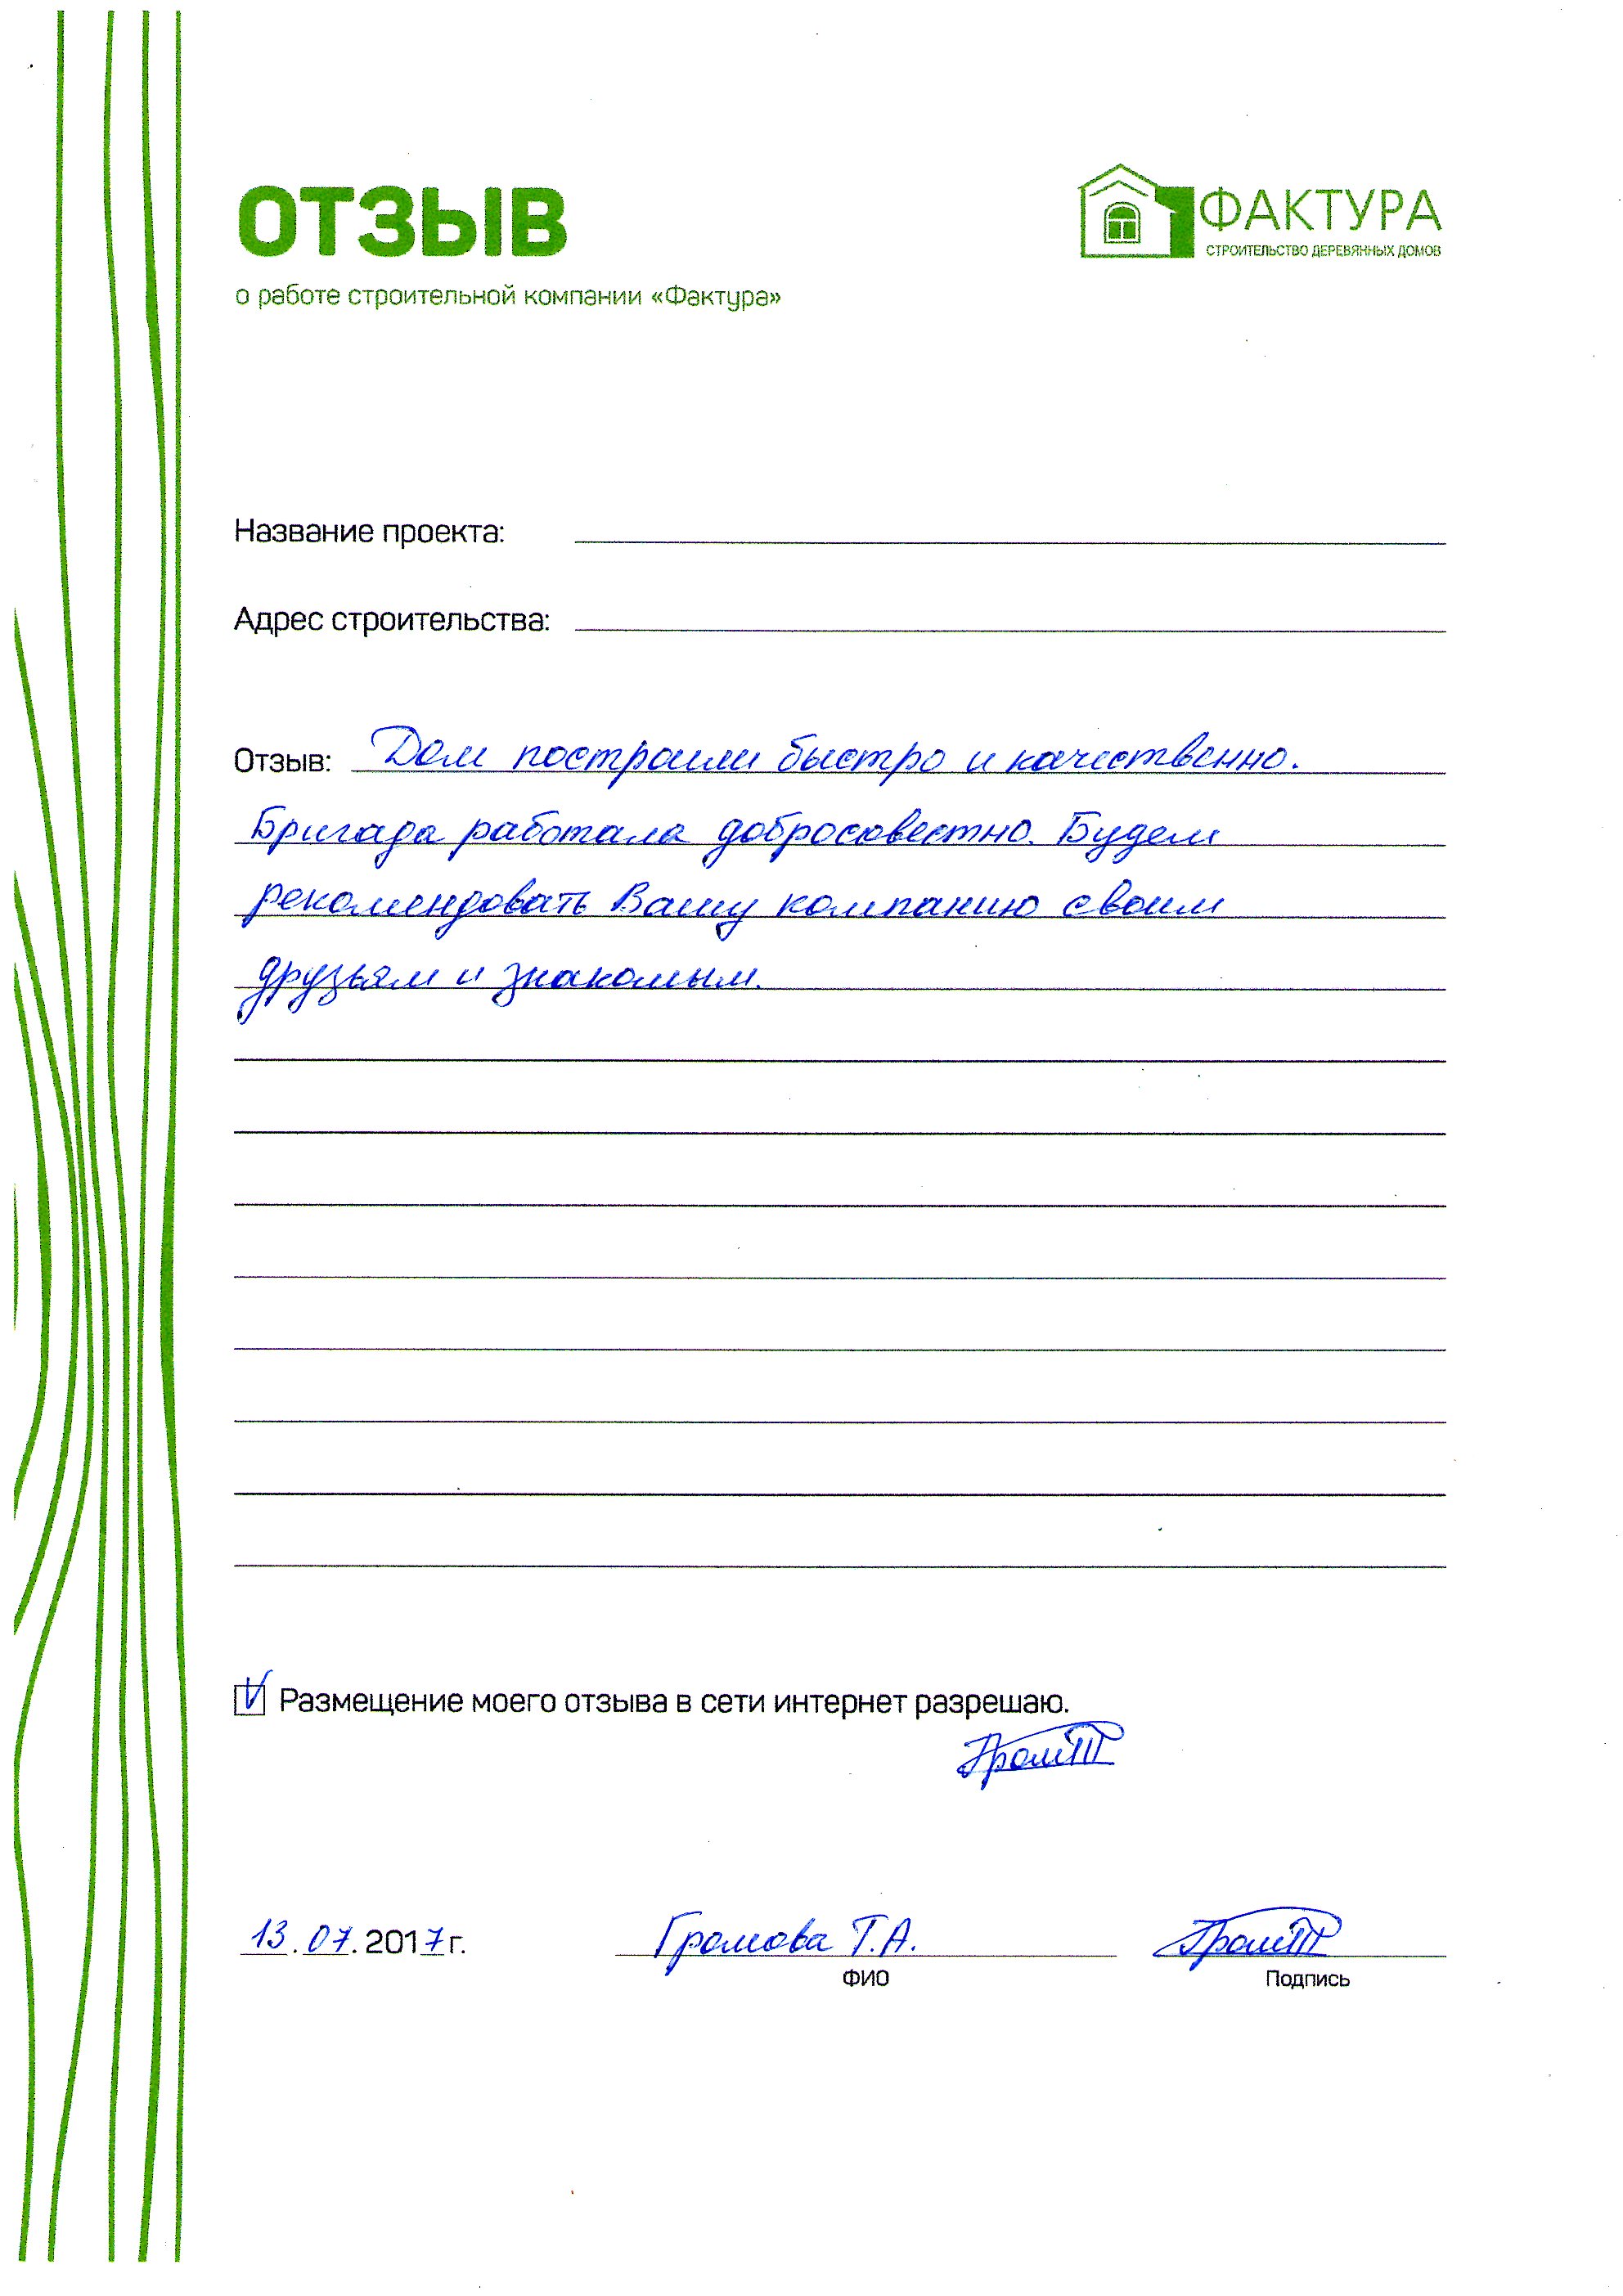 ОТЗЫВ
ФАКТУРА
СТРОИТЕЛЬСТВО ДЕРЕВЯННЫХ ДОМОВ
о работе строительной компании «Фактура»
Название проекта:
Адрес строительства:
Отзыв: Дом построили быстро и качественно.
Бригада работала добросовестно. Будем
рекомендовать Вашу компанию своим
друзьям и знакомым.
V Размещение моего отзыва в сети интернет разрешаю.
ГромТ
13.07.2017г. Громова Т.А. ГромТ
ФИО Подпись